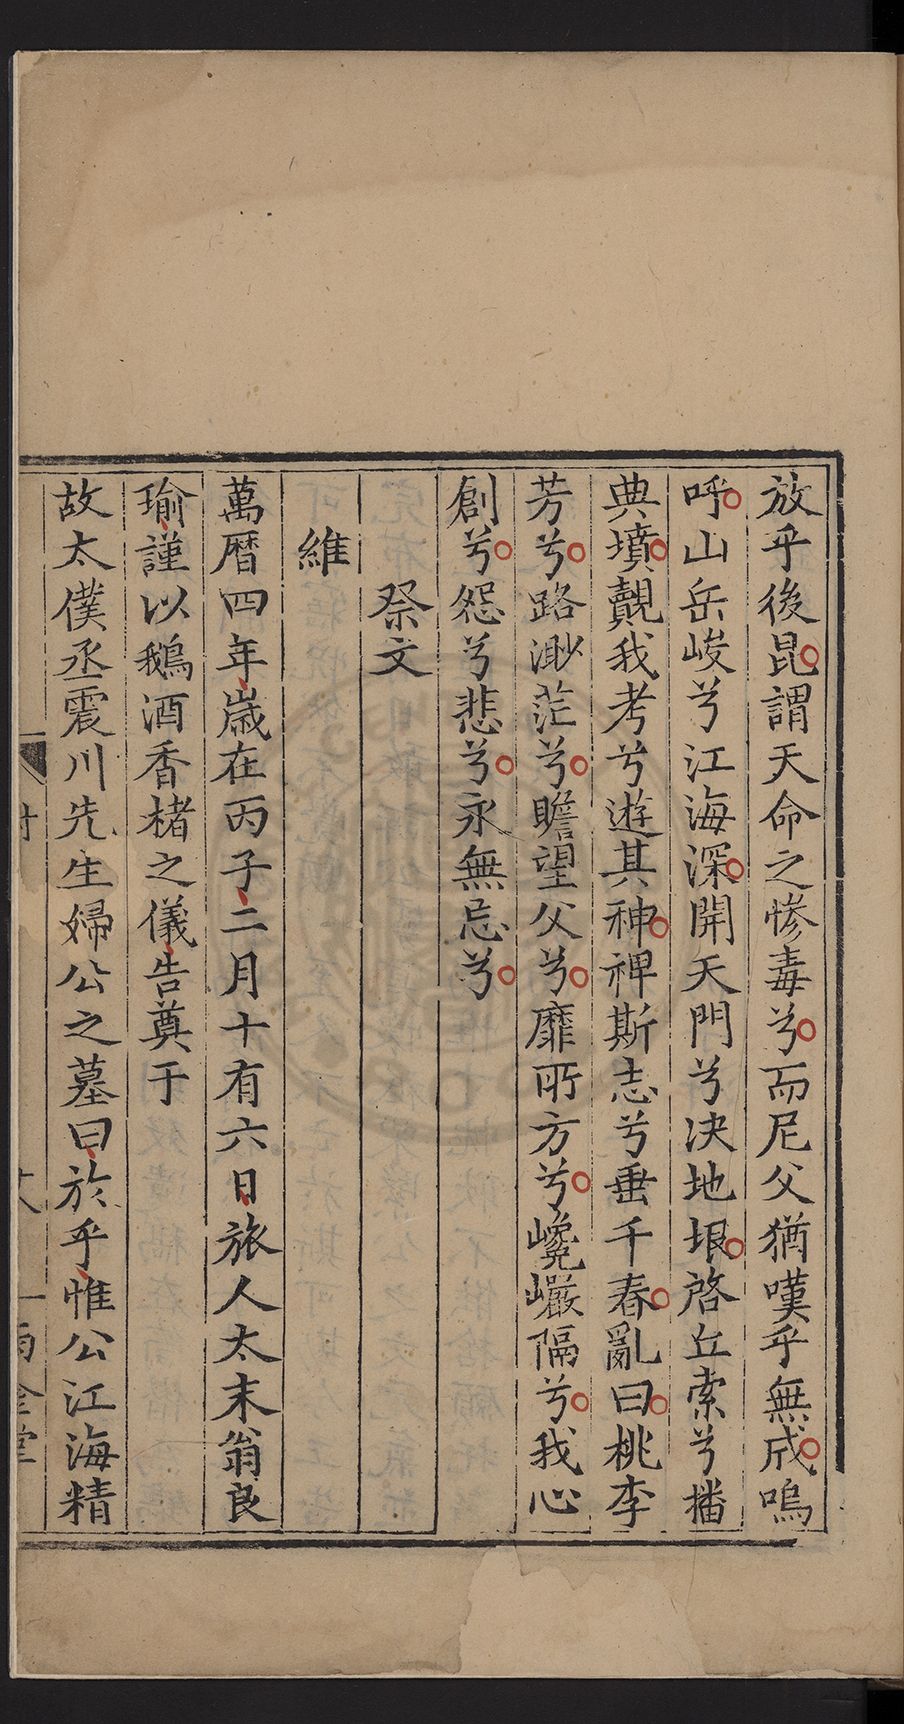 放乎後昆謂天命之慘毒兮而尼父猶嘆乎無成嗚
呼山岳峻兮江海深開天門兮决地垠啓丘索兮播
典墳覿我考兮遊其神禆斯志兮垂千春亂曰桃李
芳兮路渺茫兮瞻望父兮靡所方兮巉巖隔兮我心
創兮怨兮悲兮永無忘兮
祭文
維
萬曆四年歲在丙子二月十有六日旅人太末翁良
瑜謹以鵝酒香楮之儀告奠于
故太僕丞震川先生歸公之墓曰於乎惟公江海精